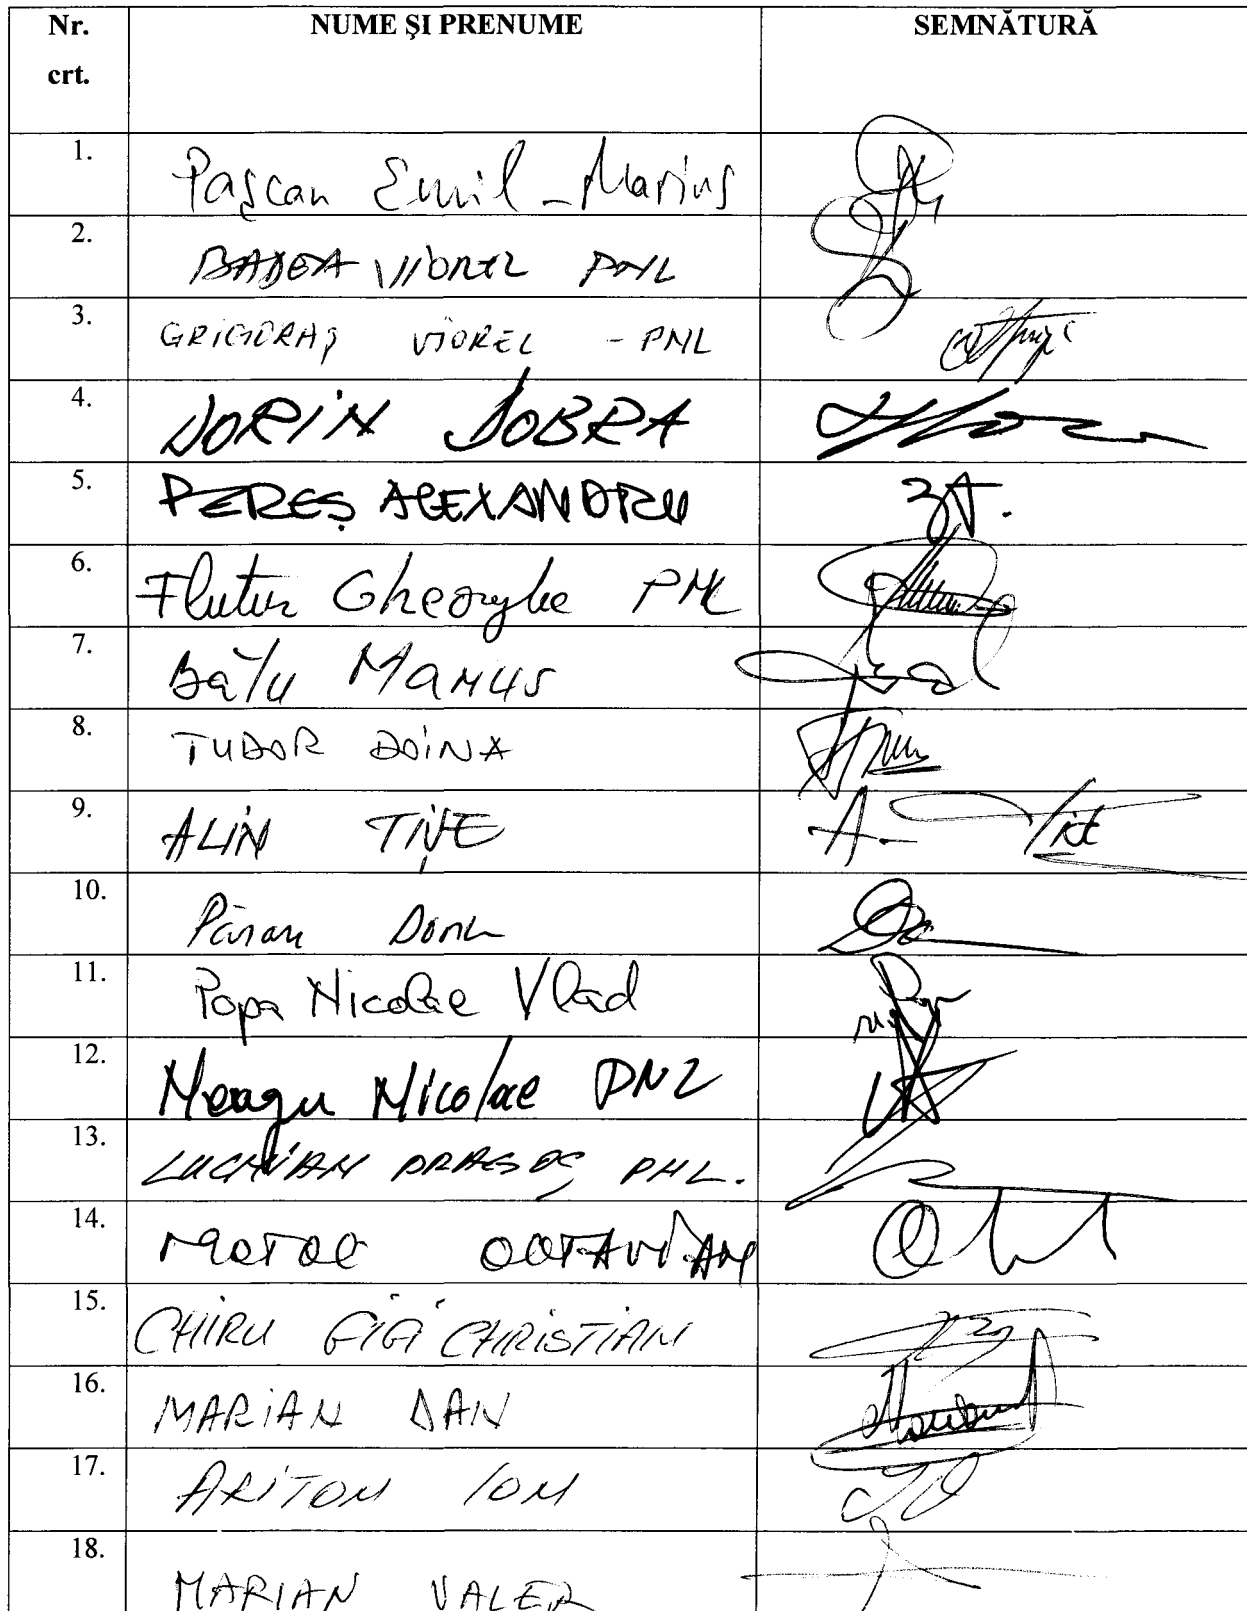 Nr. crt. NUME ŞI PRENUME SEMNĂTURĂ
1. Paşcan Emil-Marius
2. BADEA VIOREL PNL
3. GRIGORAŞ VIOREL - PNL
4. DORIN DOBRA
5. PEREŞ ALEXANDRU
6. Flutur Gheorghe PNL
7. Bâlu Marius
8. TUDOR DOINA
9. ALIN TIŞE
10. Păran Dorel
11. Popa Nicolae Vlad
12. Neagu Nicolae PNL
13. LUCHIAN DRAGOŞ PNL.
14. MOTOC OCTAVIAN
15. CHIRU GIGI CHRISTIAN
16. MARIAN DAN
17. ARITON ION
18. MARIAN VALER